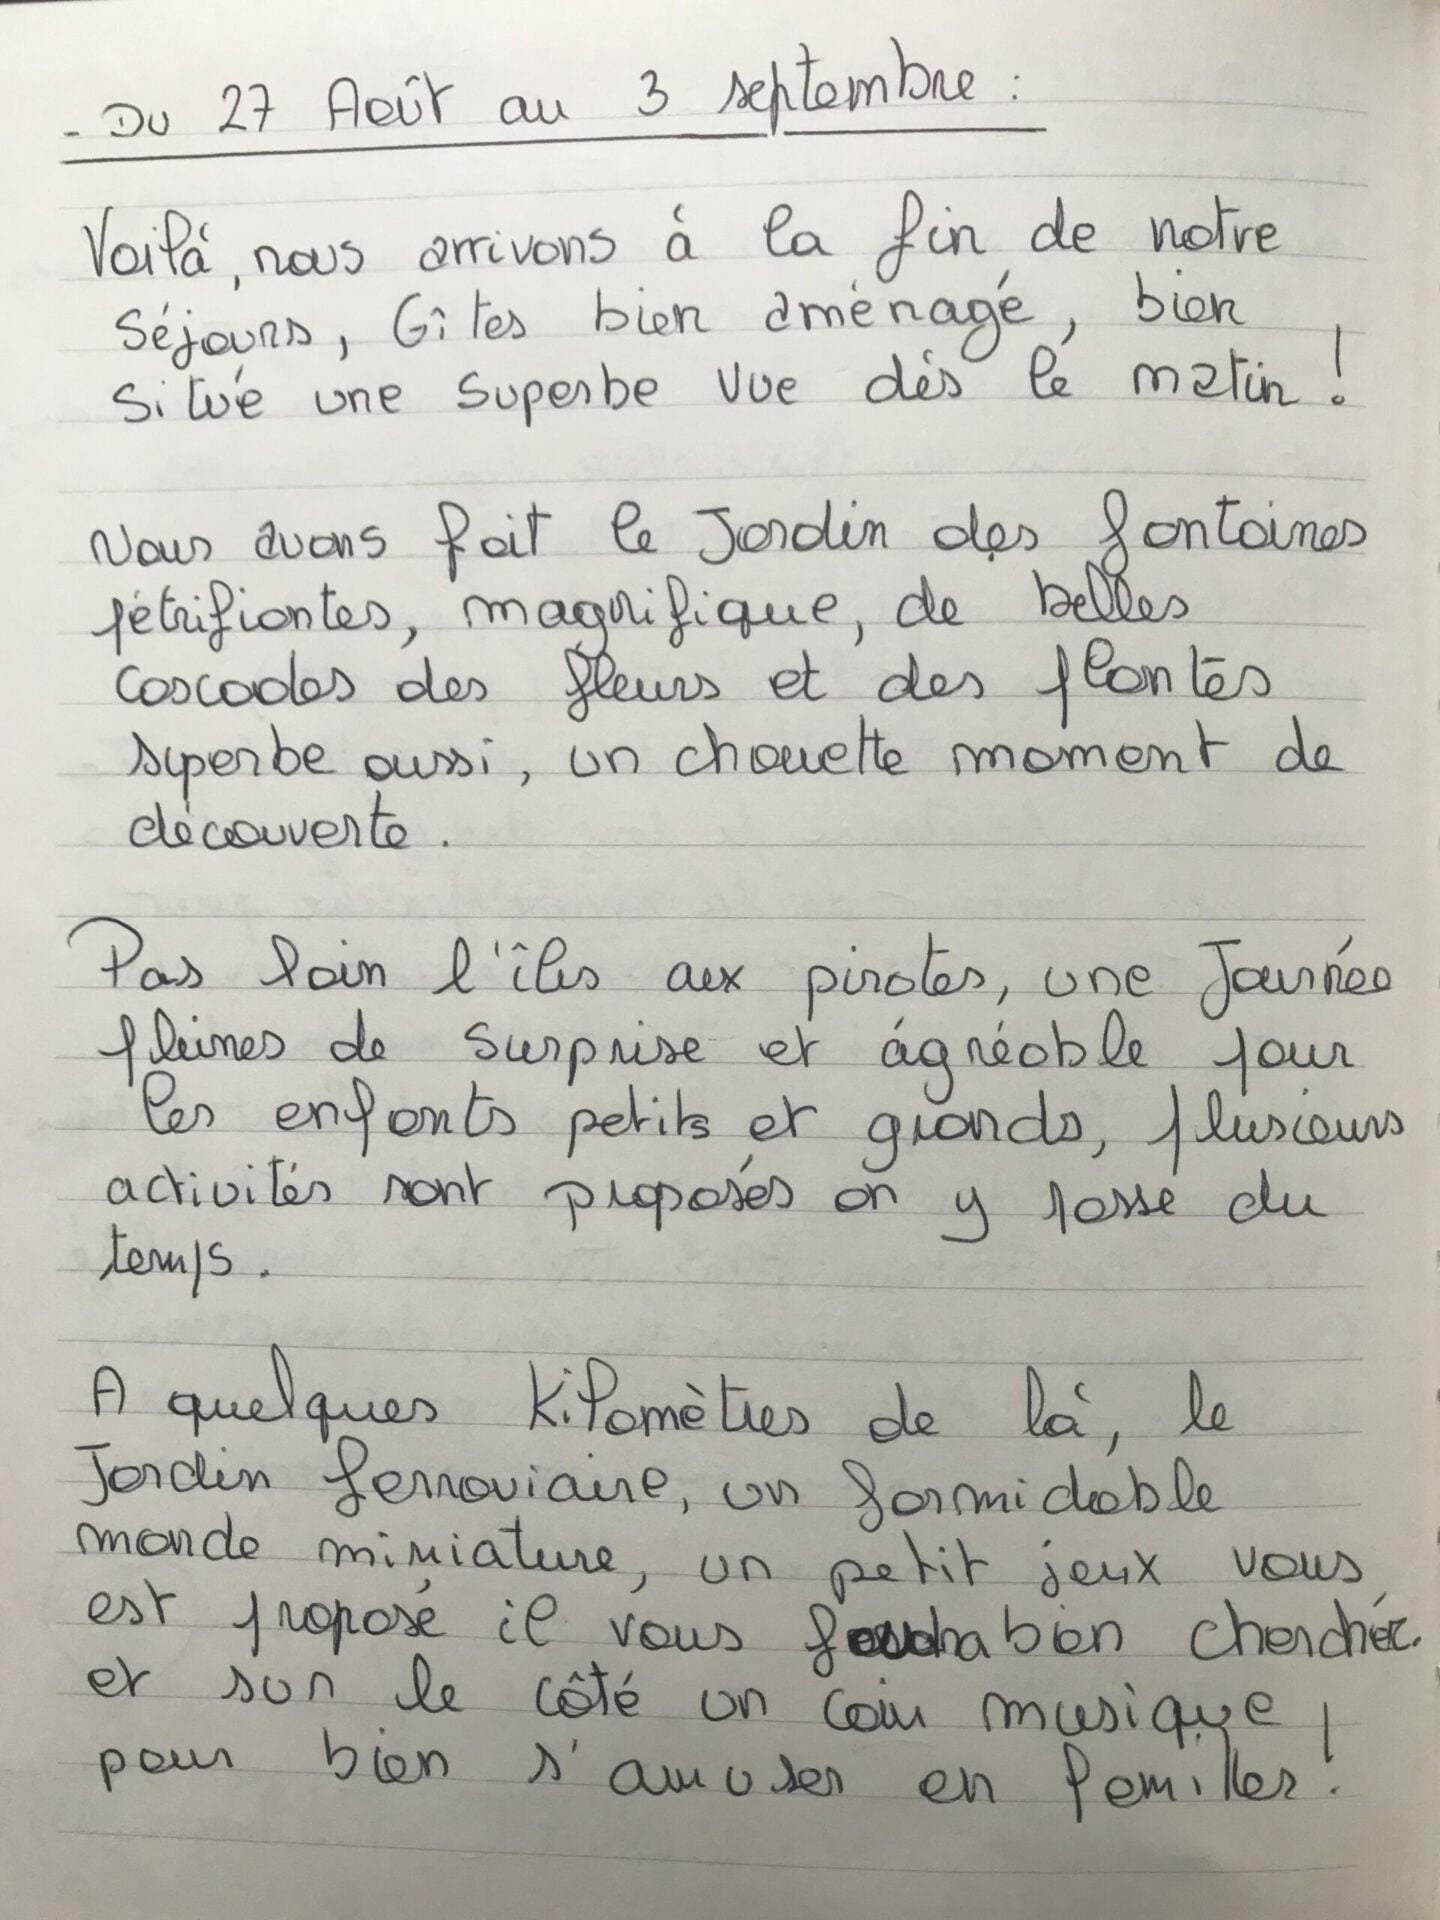 - Du 27 Août au 3 septembre :
Voilà, nous arrivons à la fin de notre
séjours, Gîtes bien aménagé, bien
situé une superbe vue dés le matin !
Nous avons fait le Jardin des fontaines
pétrifiantes, magnifique, de belles
cascades des fleurs et des plantes
superbe aussi, un chouette moment de
découverte.
Pas loin l'îles aux pirates, une Journée
pleines de surprise et agréable pour
les enfants petits et grands, plusieurs
activités sont proposés on y passe du
temps.
A quelques kilomètres de là, le
Jardin ferroviaire, un formidable
monde miniature, un petit jeux vous
est proposé il vous faudra bien cherchér.
et sur le côté un coin musique
pour bien s'amuser en familles !